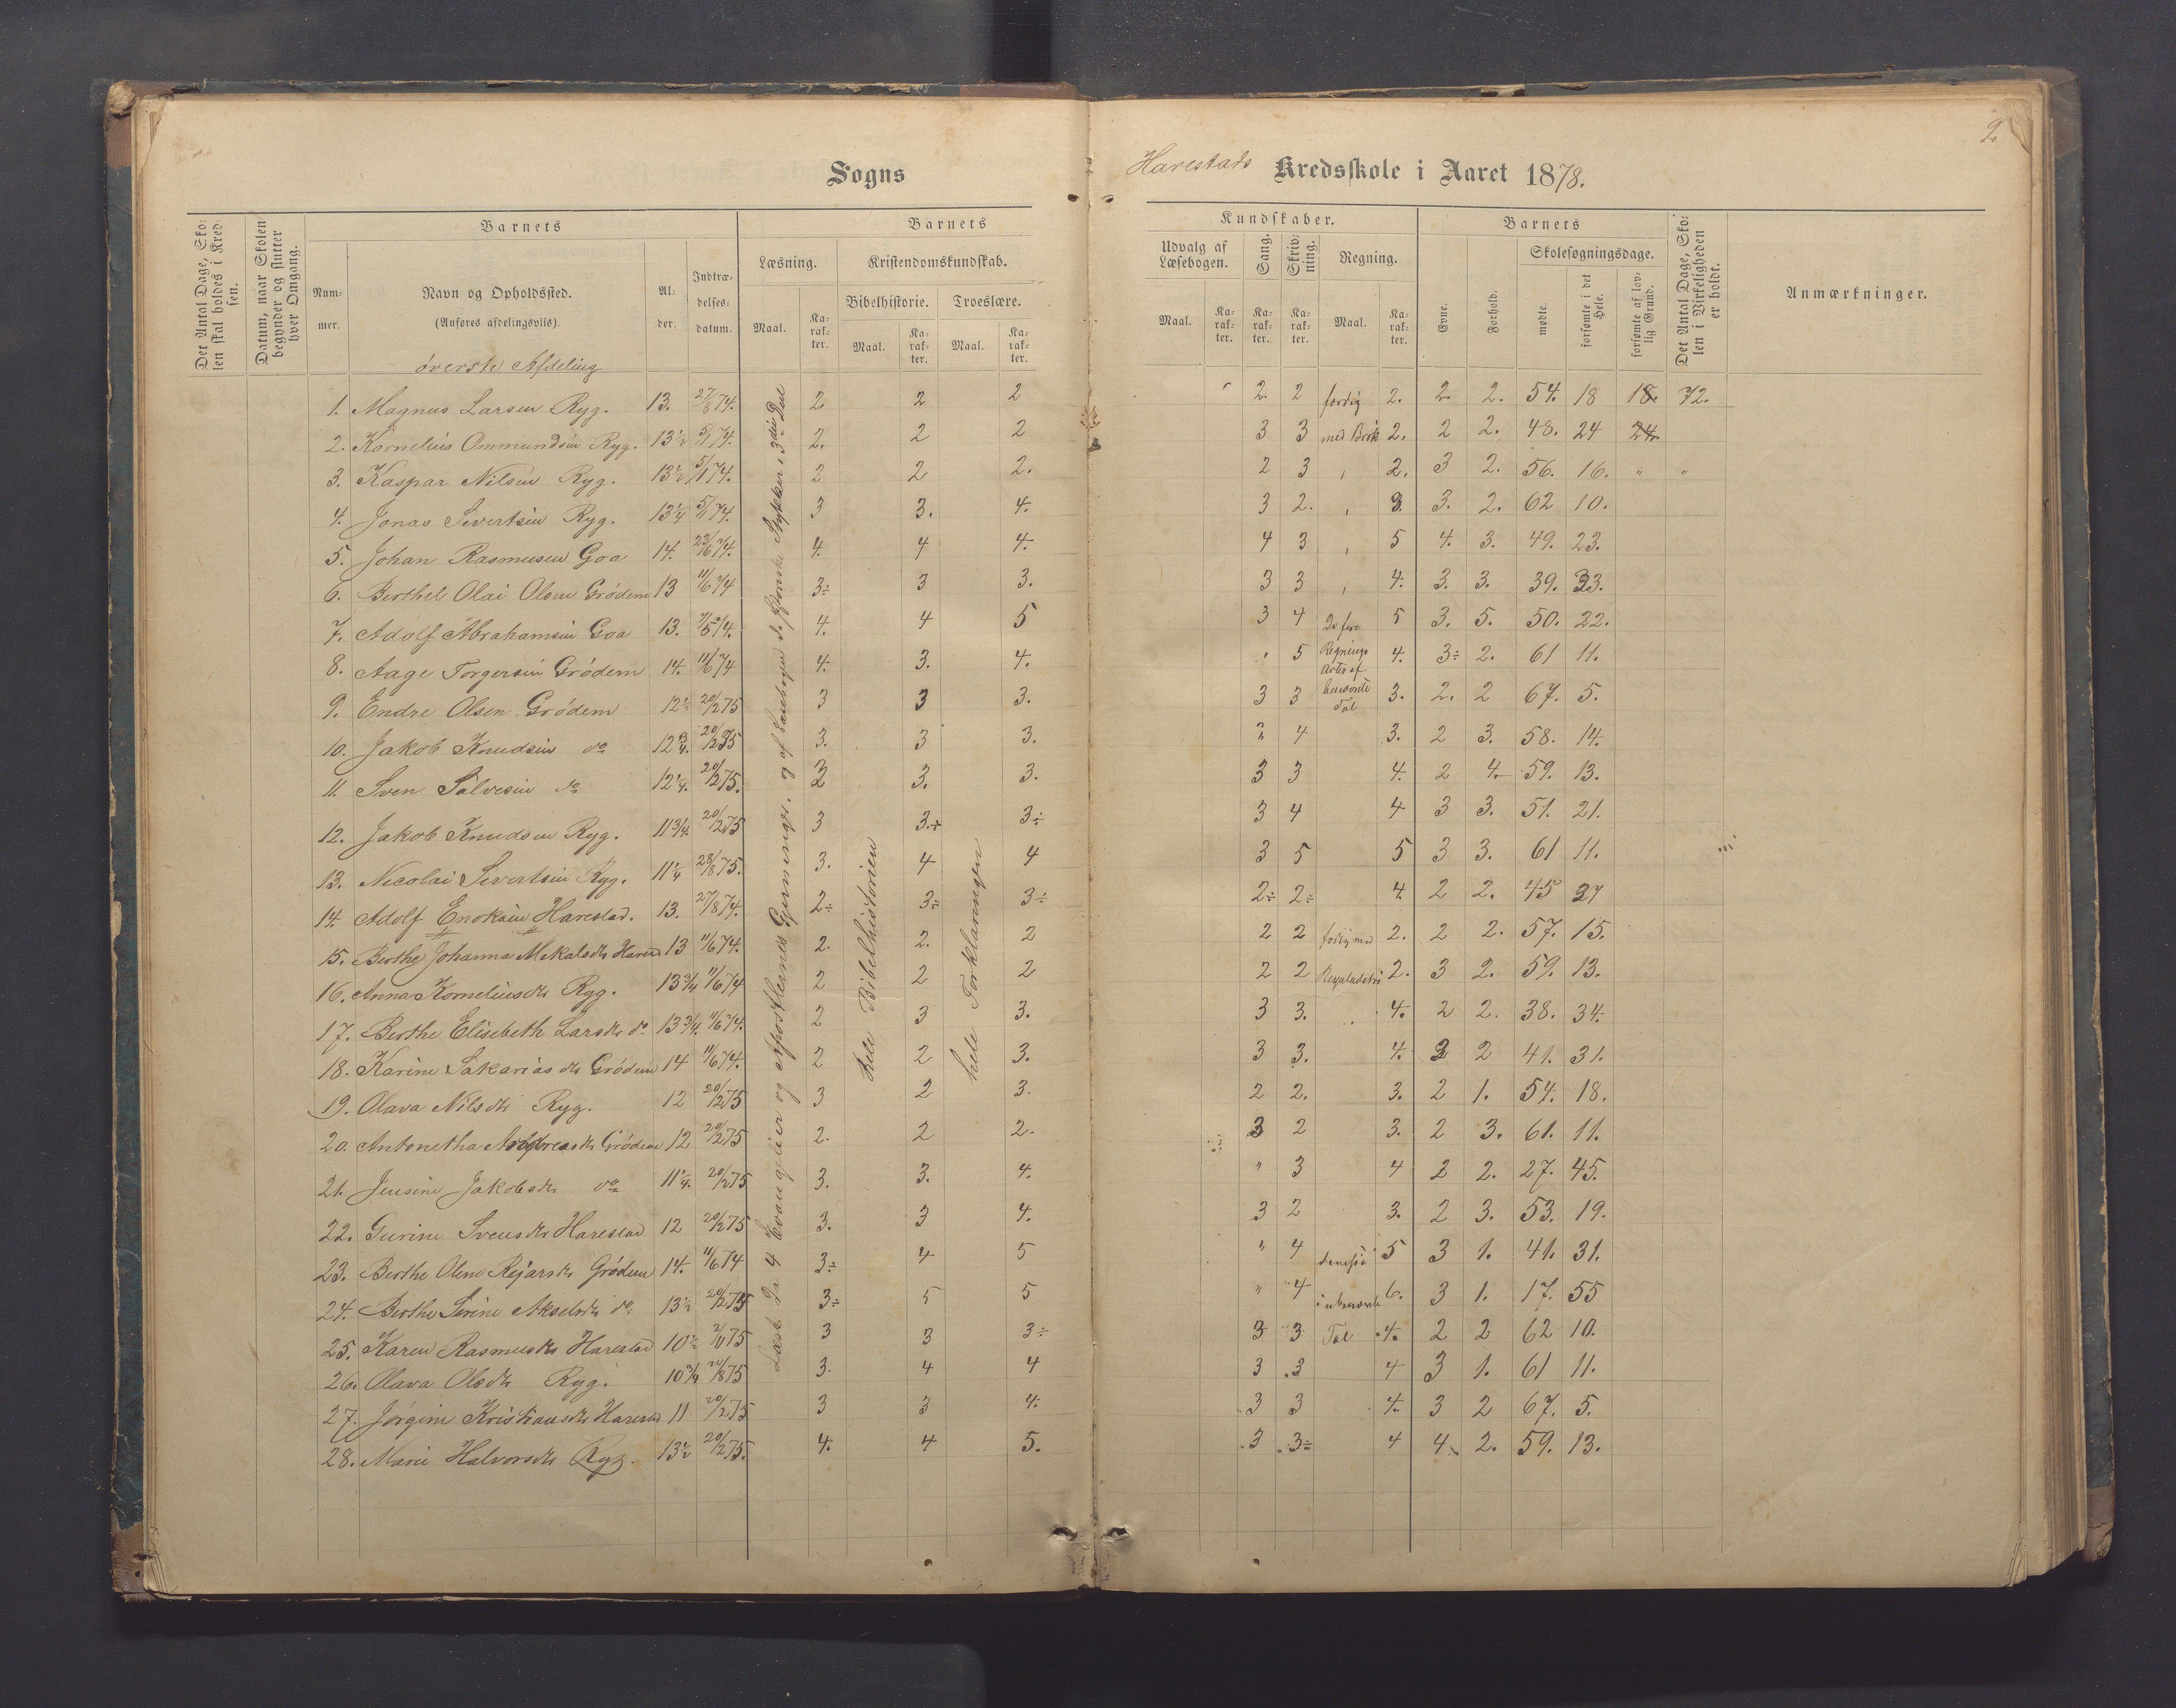 2
Sogns
Harestads Kredsskole i Aaret 1878.
Det Antal Dage, Skolen skal holdes i Kredsen.
Datum, naar Skolen begynder og slutter hver Omgang.
Barnets
Nummer.
Navn og Opholdssted.
(Anføres afdelingsvis).
Alder.
Indtrædelsesdatum.
Barnets
Læsning.
Kristendomskundskab.
Bibelhistorie.
Troeslære.
Maal.
Karakter.
Maal.
Karakter.
Maal.
Karakter.
Kundskaber.
Udvalg af Læsebogen.
Sang.
Skrivning.
Regning.
Maal.
Karakter.
Karakter.
Karakter.
Maal.
Karakter.
Barnets
Evne.
Forhold.
Skolesøgningsdage.
mødte.
forsømte i det Hele.
forsømte af lovlig Grund.
Det Antal Dage, Skolen i Virkeligheden er holdt.
Anmærkninger.
øverste Afdeling
1. Magnus Larsen Ryg. 13. 27/8 74. 2. 2 2 2. 2 færdig 2. 2. 2. 54. 18 18. 72.
2. Kornelius Ommundsen Ryg. 13½ 5/1 74. 2. 2 2 3 3 med Brøk 2. 2 2. 48. 24 24.
3. Kaspar Nilsen Ryg. 13½ 5/1 74. 2 2 2. 2 3 2. 3 2. 56. 16. " "
4. Jonas Sivertsen Ryg. 13¼ 5/1 74. 3 3. 4. 3 2. 3. 3. 2. 62 10.
5. Johan Rasmusen Goa 14. 23/6 74. 4. 4 4. 4 3 5 4. 3. 49. 23.
6. Berthel Olai Olsen Grødem 13 11/6 74 3÷ 3 3. 3 3 4. 3. 3. 39. 33.
7. Adolf Abrahamsen Goa 13. 4. 4 5 3 4 De fire 5 3. 5. 50. 22.
8. Aage Torgersen Grødem 14. 11/6 74 4. 3. 4. 5 Regnings Arter af 4. 3÷ 2. 61 11.
9. Endre Olsen Grødem 12½ 20/2 75 3 3 3. 3 3 benævnte Tal 3. 2. 2 67. 5.
10. Jakob Knudsen do 12¾. 20/2 75 3. 3 3. 4 3. 2 3. 58. 14.
11. Sven Salvesen do 12¼. 20/2 75. 3 3. 3. 3 3 4. 2 4. 59. 13.
12. Jakob Knudsen Ryg. 11¾. 20/2 75 3 3.+ 3÷ 3 4 4 3 3. 51. 21.
13. Necolai Sivertsen Ryg. 11¼ 28/8 75. 3. 4 4 3 5 5 3 3. 61 11.
14. Adolf Enoksen Harestad. 13. 27/8 74. 2÷ 3÷ 3÷ 2÷ 2÷ 4. 2 2. 45 27
15. Berthe Johanna Mikalsdtr 13 11/6 74. 2. 2. 2 2 2 2. 2 2. 57. 15.
16. Anna Korneliusdtr Ryg. 13¾ 11/6 74 2 2 2 2 2 2. 3 2. 59. 13.
17. Berthe Elisebeth Larsdtr do 13¾. 11/6 74. 2 3 3. 3 3. 4. 2 2. 38. 34.
18. Karine Sakariasdtr Grødem 14 11/6 74. 2 2 3. 3 3. 4. 2 41. 31.
19. Olava Nilsdtr Ryg. 12 20/2 75 3 2 3. 2 2. 3. 2 1. 54. 18.
20. Antonetha Andreasdtr Grødem 12 20/2 75 2. 2 2. 3 2 3. 2 3. 61. 11.
21. Jensine Jakobsdtr do 11¼. 20/2 75 3. 3. 4. " 3 4 2 2. 27. 45.
22. Gurine Svensdtr Harestad 12 20/2 75 3. 3 4. 3 2 3. 2 3. 53. 19.
23. Berthe Olene Rejarsdtr Grødem 14. 11/6 74 3÷ 4 5 " 4 5 3 1. 41. 31.
24. Berthe Serine Akselsdtr do 13½ 20/2 75 3÷ 5 5 " 4 i ubenævnte 6. 3 1. 17. 55
25. Karen Rasmusdtr Harestad 10½ 75 3 3 3÷ 3 3 Tal 4. 2 2 62 10.
26. Olava Olsdtr Ryg. 10¾ 75 3. 4 4 3 3 4 3 1. 61 11.
27. Jørgine Kristiansdtr 11 20/2 75 3 3 4. 3 3 4. 3 2 67. 5.
28. Marie Halvorsdtr Ryg. 13½ 20/2 75. 4. 4 5. 3 3÷ 4 4. 2. 59. 13.
Læst de 4 Evangelier og Apostlernes Gjerninger, og af Læsebogen de Stykker i 3die Del
hele Bibelhistorien
hele Forklaringen